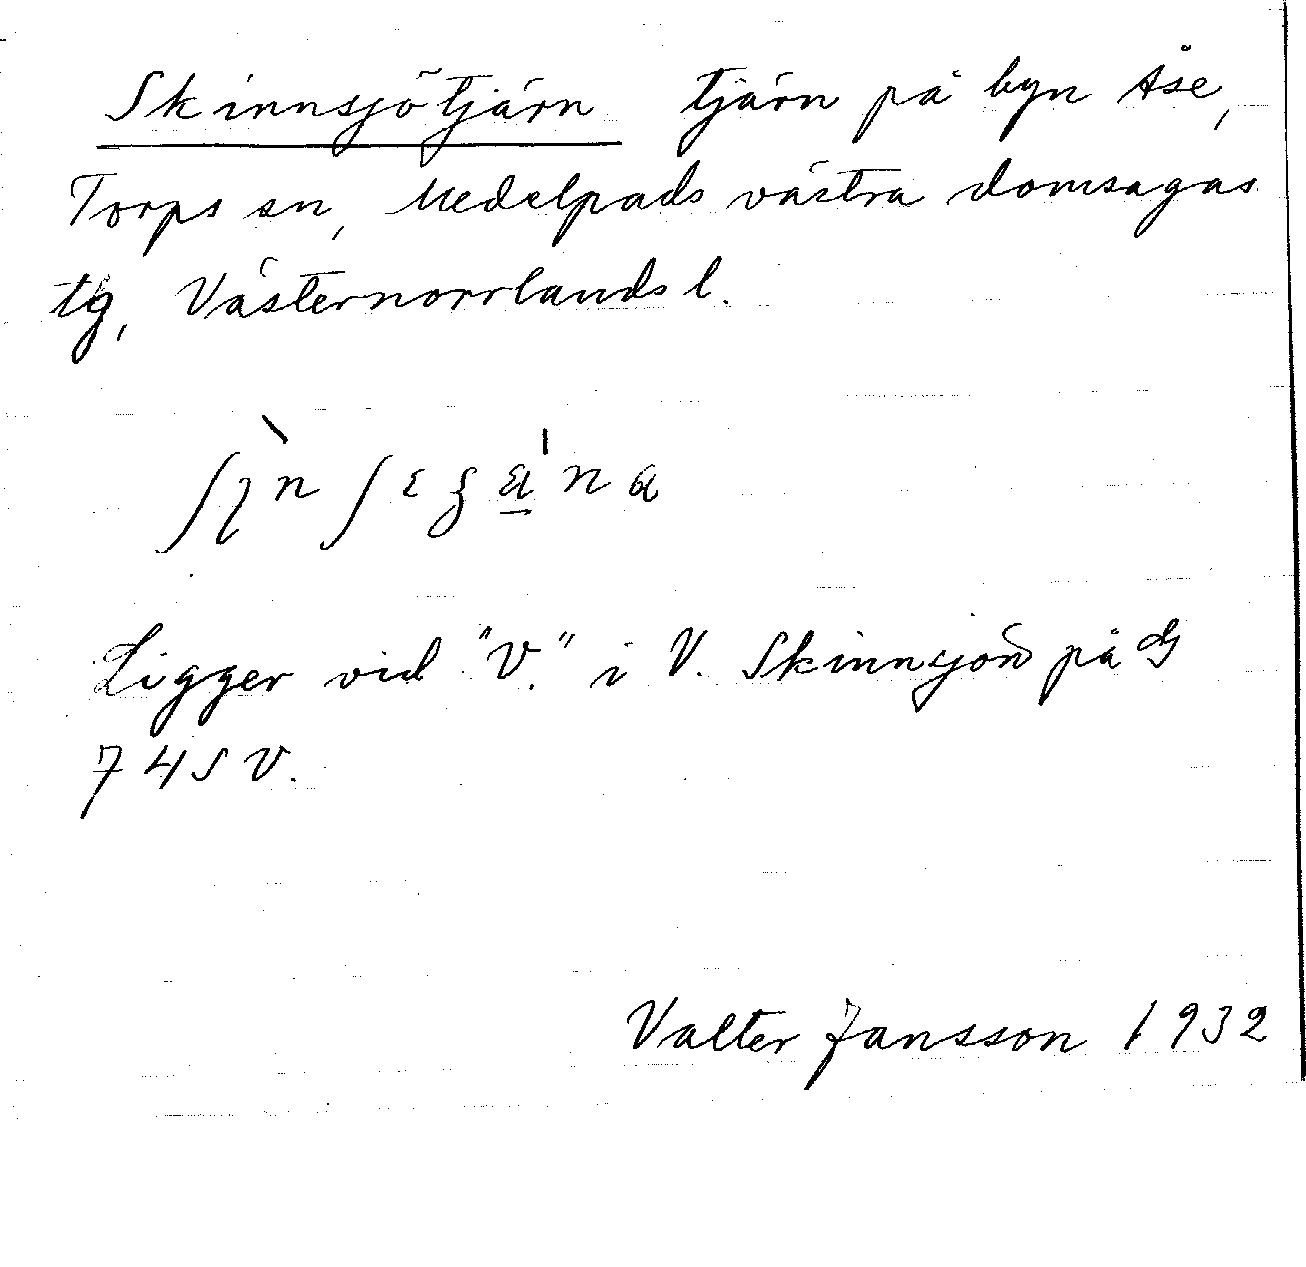 Skinnsjötjärn tjärn på byn Åse,
Torps sn, Medelpads västra domsagas
tg, Västernorrlands l.
Ligger vid "V." i V. Skinnsjön på
74SV.
Valter Jansson 1932